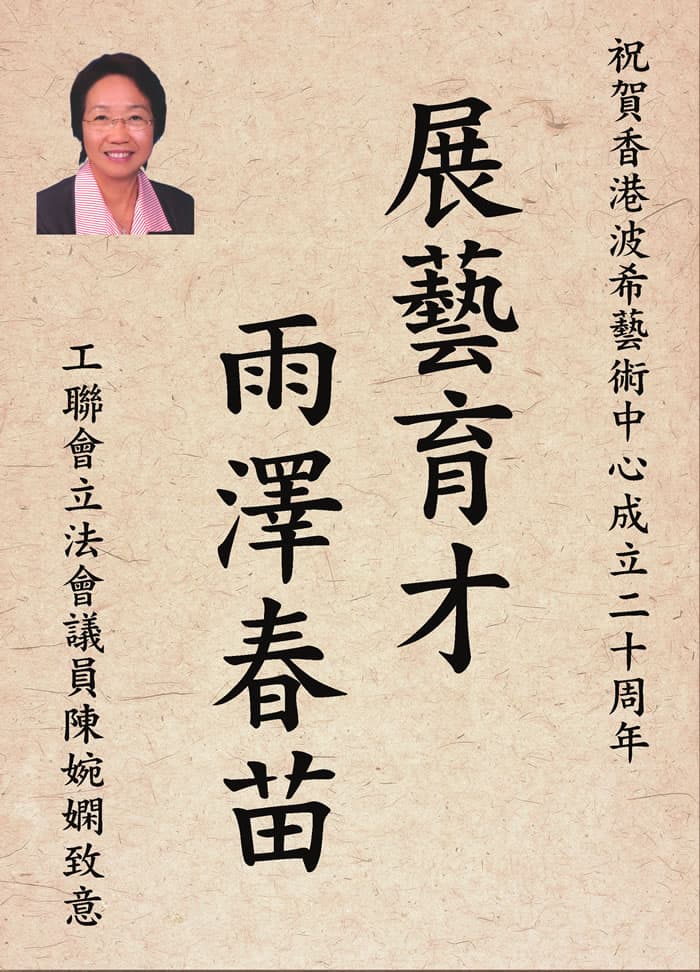 祝賀香港波希藝術中心成立二十周年
展藝育才
雨澤春苗
工聯會立法會議員陳婉嫻致意